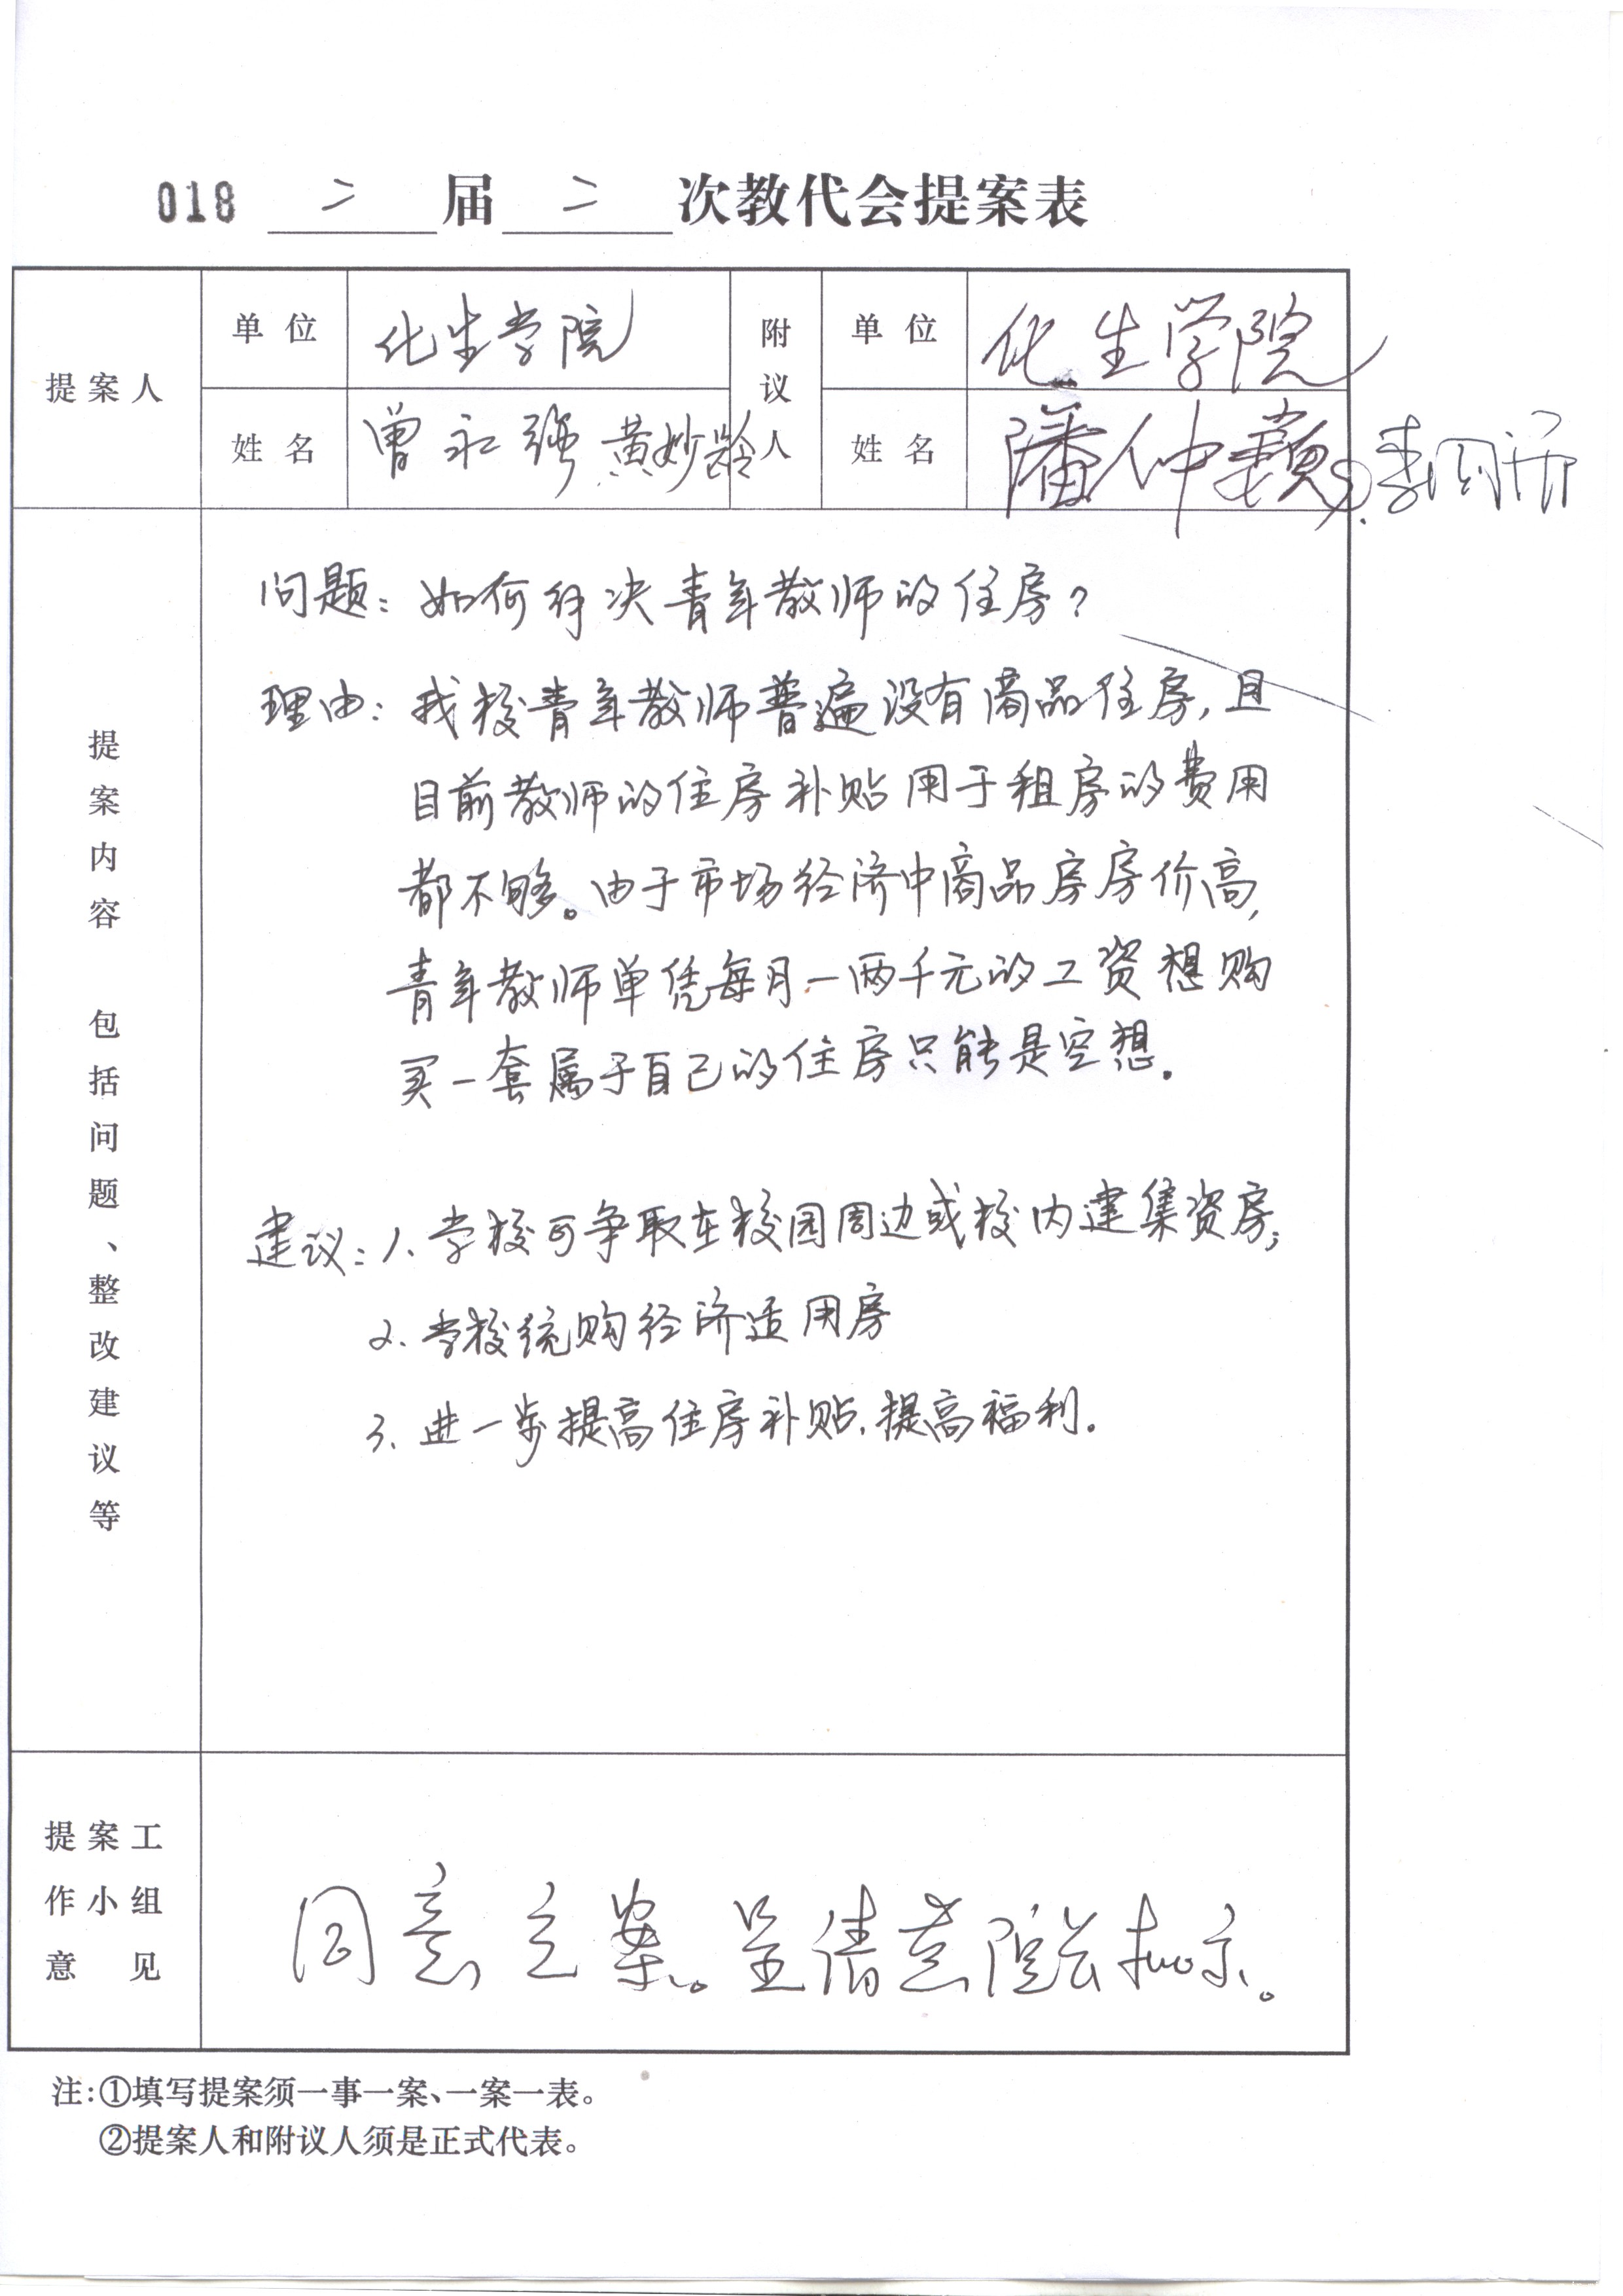 018 二 届 二 次教代会提案表
提案人 单位 化生学院 附议人 单位 化生学院
姓名 曾永强 黄妙龄 姓名 潘仲巍
提案内容 包括问题、整改建议等
问题：如何解决青年教师的住房？
理由：我校青年教师普遍没有商品住房，且
目前教师的住房补贴用于租房的费用
都不够。由于市场经济中商品房房价高，
青年教师单凭每月一两千元的工资想购
买一套属于自己的住房只能是空想。
建议：1、学校可争取在校园周边或校内建集资房；
2、学校统购经济适用房
3、进一步提高住房补贴，提高福利。
提案工
作小组
意 见
同意立案。呈请党院会批示。
注：①填写提案须一事一案、一案一表。
②提案人和附议人须是正式代表。